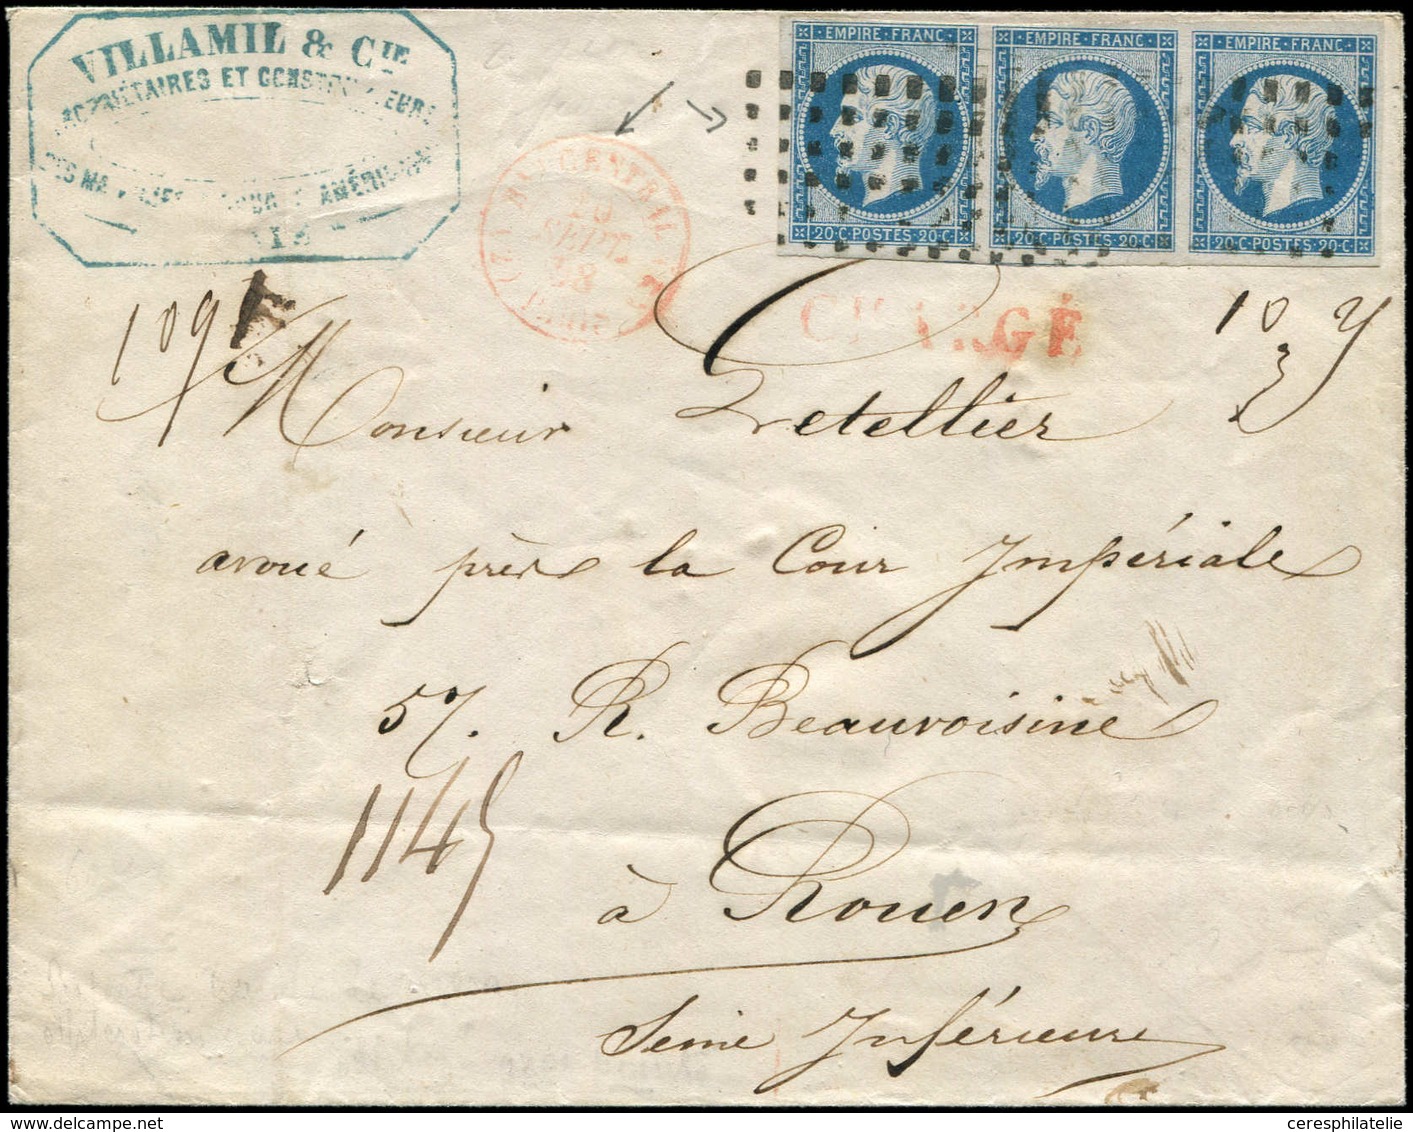 VILLAMIL & CIE
PROPRIÉTAIRES ET CONSTRUCTEURS
EMPIRE FRANC
20·C·POSTES·20·C·
EMPIRE·FRANC·
20·C·POSTES·20·C·
EMPIRE·FRANC·
20·C·POSTES·20·C·
CENTRAL
SEPT.
58
CHARGÉ
109
10
3
Monsieur Letellier
avoué près la Cour Impériale
57. R. Beauvoisine
1145
à Rouen
Seine Inférieure
ceresphilatelie